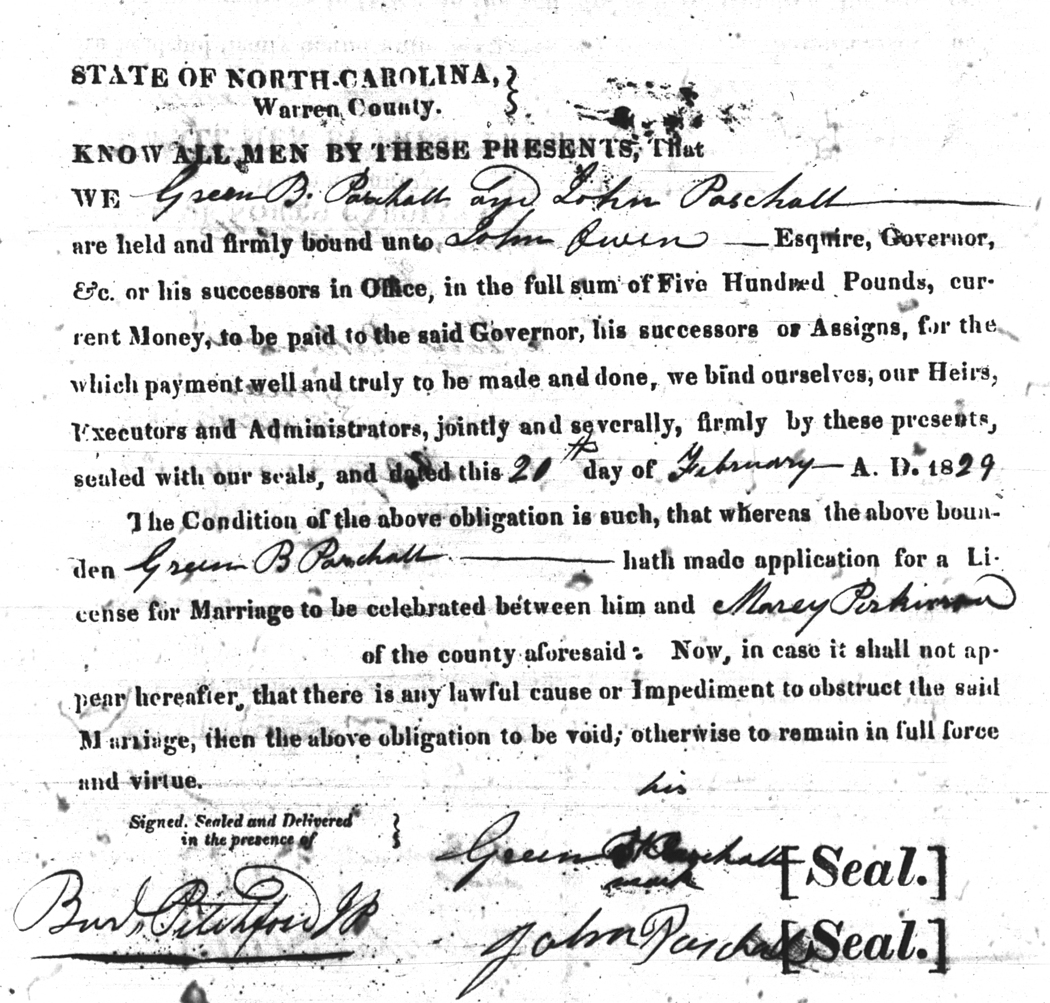 STATE OF NORTH-CAROLINA,
Warren County.
KNOW ALL MEN BY THESE PRESENTS, That
WE Green B. Paschall and John Paschall
are held and firmly bound unto John Owen Esquire, Governor,
&c. or his successors in Office, in the full sum of Five Hundred Pounds, cur-
rent Money, to be paid to the said Governor, his successors or Assigns, for the
which payment well and truly to be made and done, we bind ourselves, our Heirs,
Executors and Administrators, jointly and severally, firmly by these presents,
sealed with our seals, and dated this 20th day of February A. D. 1829
The Condition of the above obligation is such, that whereas the above boun-
den Green B Paschall hath made application for a Li-
cense for Marriage to be celebrated between him and Marey Perkinson
of the county aforesaid: Now, in case it shall not ap-
pear hereafter, that there is any lawful cause or Impediment to obstruct the said
Marriage, then the above obligation to be void; otherwise to remain in full force
and virtue.
his
Signed, Sealed and Delivered
in the presence of
Green Paschall [Seal.]
mark
Pitchford JP
John Paschall [Seal.]